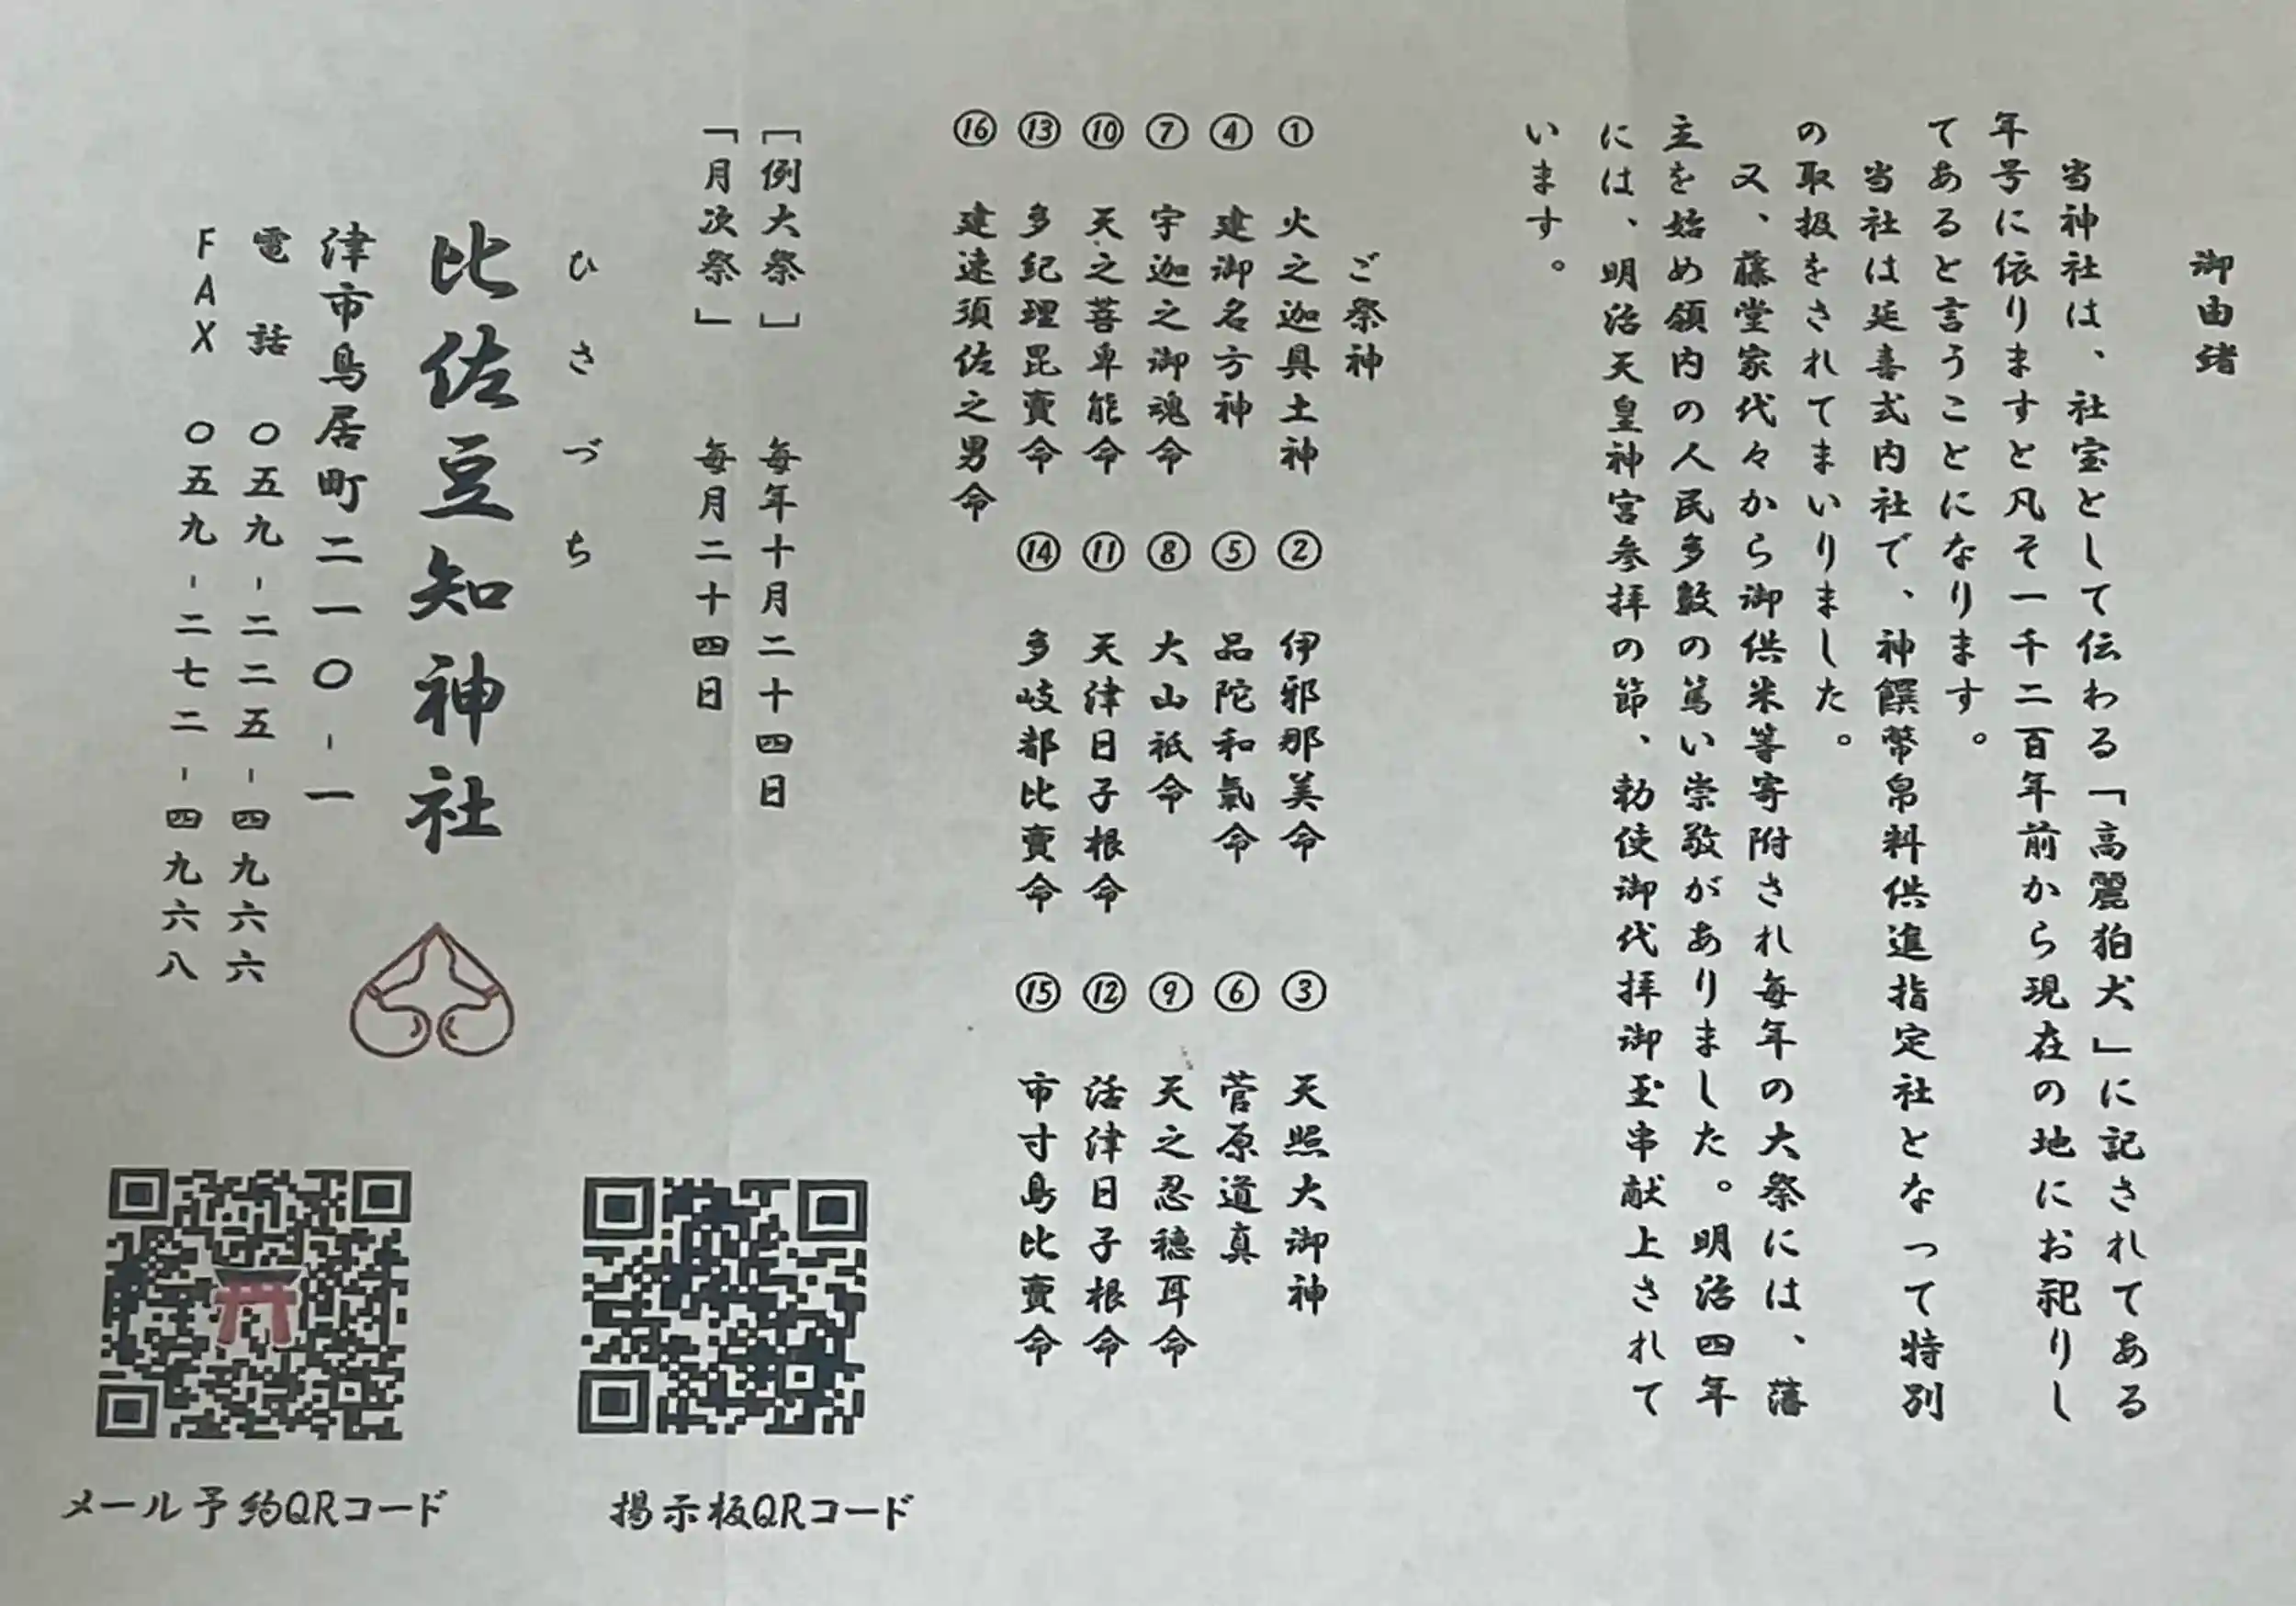 御由緒
当神社は、社宝として伝わる「高麗狛犬」に記されてある
年号に依りますと凡そ一千二百年前から現在の地にお祀りし
てあると言うことになります。
当社は延喜式内社で、神饌幣帛料供進指定社となって特別
の取扱をされてまいりました。
又、藤堂家代々から御供米等寄附され毎年の大祭には、藩
主を始め領内の人民多数の篤い崇敬がありました。明治四年
には、明治天皇神宮参拝の節、勅使御代拝御玉串献上されて
います。
ご祭神
① 火之迦具土神 ② 伊邪那美命 ③ 天照大御神
④ 建御名方神 ⑤ 品陀和氣命 ⑥ 菅原道真
⑦ 宇迦之御魂命 ⑧ 大山祇命 ⑨ 天之忍穂耳命
⑩ 天之菩卑能命 ⑪ 天津日子根命 ⑫ 活津日子根命
⑬ 多紀理毘賣命 ⑭ 多岐都比賣命 ⑮ 市寸島比賣命
⑯ 建速須佐之男命
[例大祭] 毎年十月二十四日
「月次祭」 毎月二十四日
ひさづち
比佐豆知神社
津市鳥居町二一〇-一
電話 〇五九-二二五-四九六六
FAX 〇五九-二七二-四九六八
掲示板QRコード
メール予約QRコード